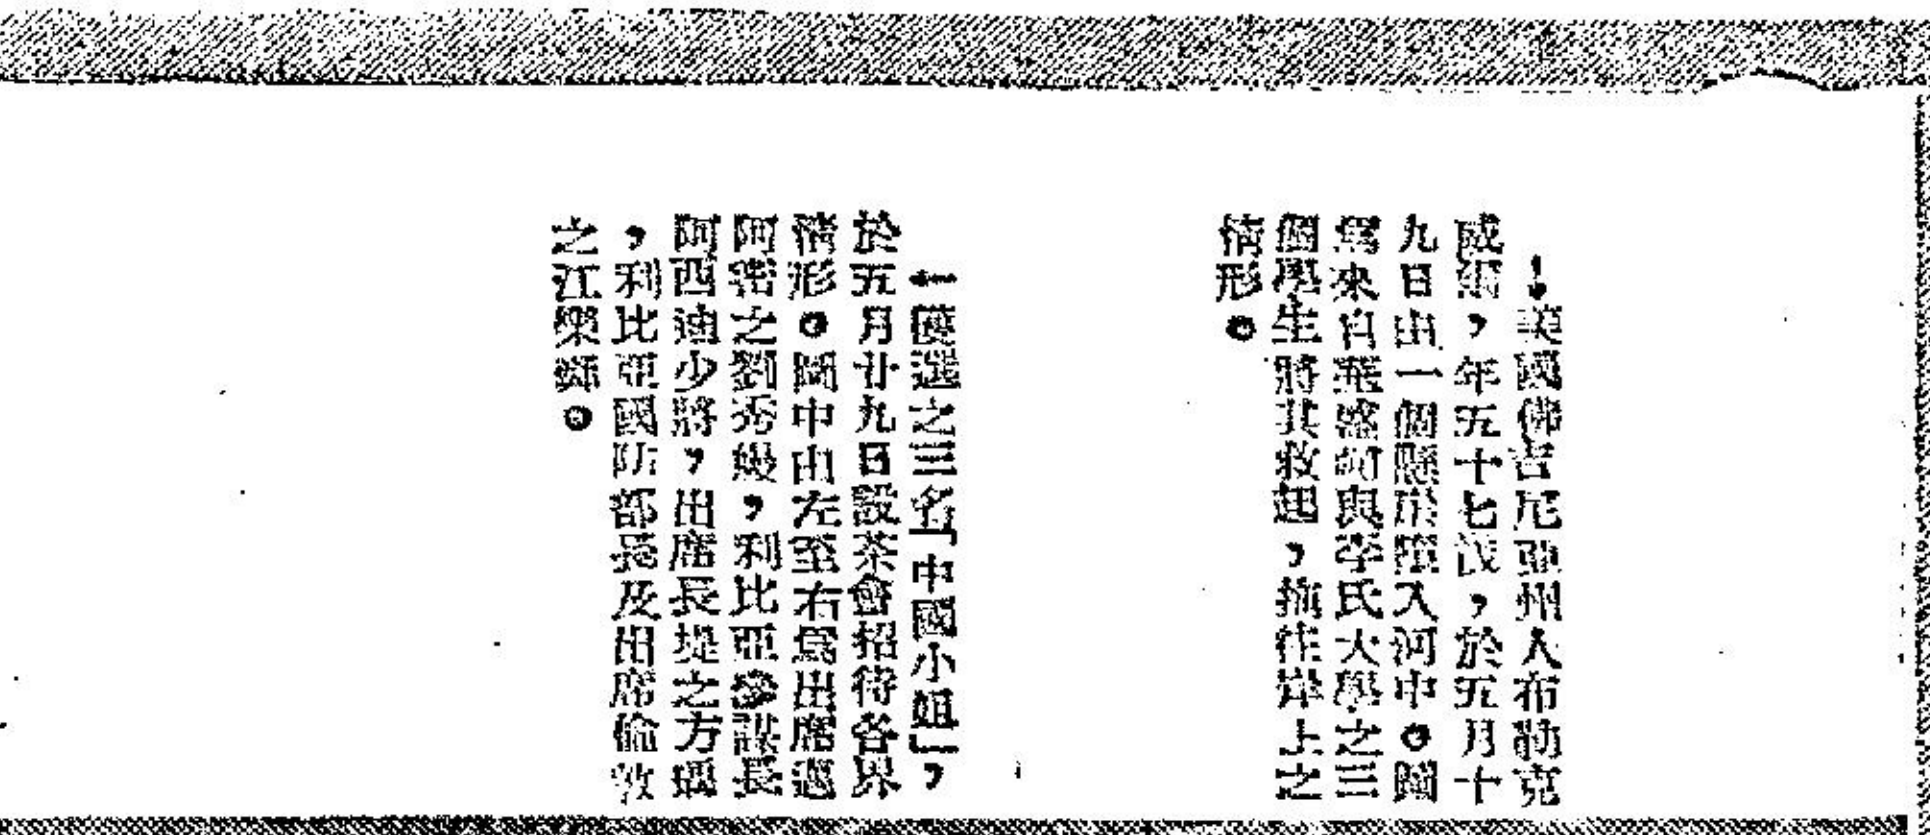 ！美國佛吉尼亞州人布勒克
威爾，年五十七歲，於五月十
九日由一個懸崖墮入河中。圖
為來自華盛頓與李氏大學之三
個學生將其救起，拖往岸上之
情形。
一獲選之三名「中國小姐」，
於五月廿九日設茶會招待各界
情形。圖中由左至右為出席邁
阿密之劉秀嫚，利比亞參謀長
阿西迪少將，出席長堤之方瑀
，利比亞國防部長及出席倫敦
之江樂舜。